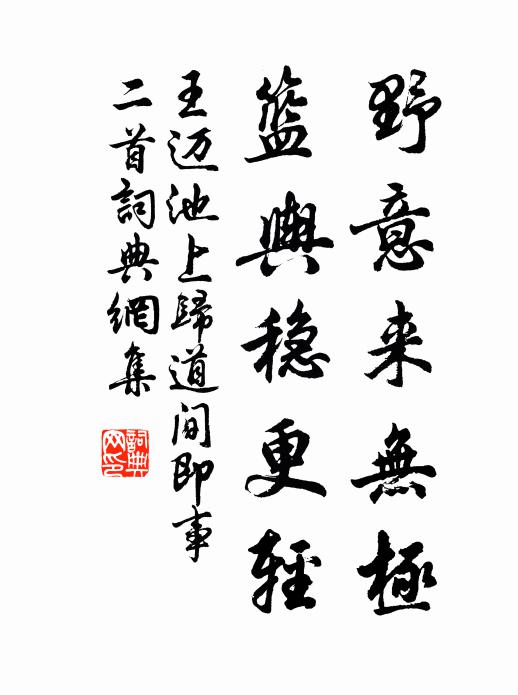 野意来無極
籃輿穏更軽
王迈池上歸道间即事
二首詞典網集
詞典网印